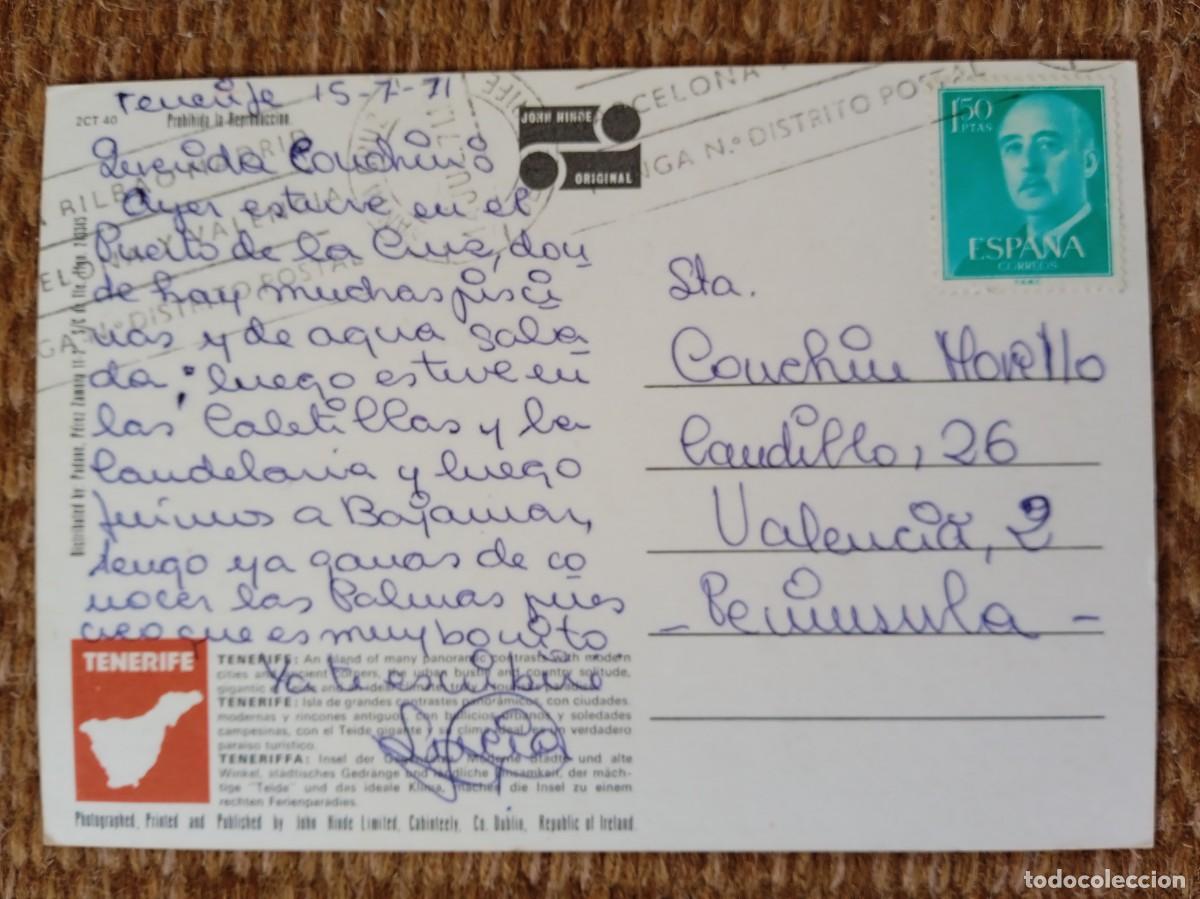 Tenerife 15-7-71
2CT 40
Prohibida la Reproducción
Querida Conchin:
Ayer estuve en el
Puerto de la Cruz, don
de hay muchas pisci
nas y de agua sala
da, luego estuve en
las Caletillas y la
Candelaria y luego
fuimos a Bajamar,
tengo ya ganas de co
nocer las Palmas pues
creo que es muy bonito.
Ya te escribiré
JOHN HINDE
ORIGINAL
BARCELONA
N.º DISTRITO POSTAL
BILBAO MADRID
VALENCIA
N.º DISTRITO POSTAL
1'50
PTAS
ESPAÑA
CORREOS
Sta.
Conchin
Caudillo, 26
Valencia, 2
- Peninsula -
Distributed by
TENERIFE
TENERIFE: An island of many panoramic contrasts with modern
cities and ancient corners, the urban bustle and country solitude,
TENERIFE: Isla de grandes contrastes panorámicos, con ciudades
modernas y rincones antiguos, con bullicios urbanos y soledades
campesinas, con el Teide gigante y su clima ideal, es un verdadero
paraiso turístico.
TENERIFFA: Insel der Moderne Städte und alte
Winkel, städtisches Gedränge und ländliche Einsamkeit, der mäch-
tige "Teide" und das ideale Klima, machen die Insel zu einem
rechten Ferienparadies.
Photographed, Printed and Published by John Hinde Limited, Cabinteely, Co. Dublin, Republic of Ireland.
todocoleccion